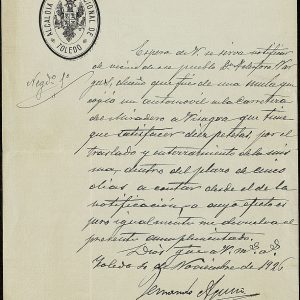 ALCALDIA CONSTITUCIONAL DE
TOLEDO
Negdo. 1º
Espero de V. se sirva notificar
al vecino de ese pueblo
dueño que fue de una mula que
cogió un automovil en la Carretera
de a que tiene
que satisfacer diez pesetas, por el
traslado y enterramiento de la mis
ma, dentro del plazo de cinco
dias a contar desde el de la
notificación, a cuyo efecto es
pero igualmente me devuelva el
presente cumplimentado.
Dios gue a V. m. a.
Toledo de Noviembre de 1926
Fernando Aguirre